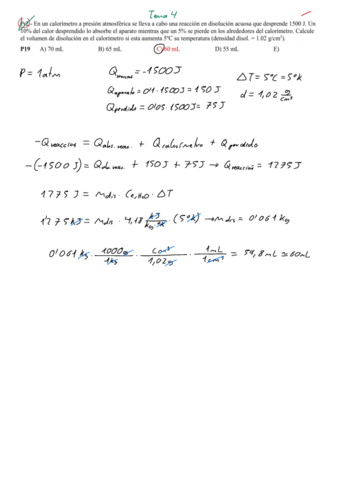 Tema 4
En un calorímetro a presión atmosférica se lleva a cabo una reacción en disolución acuosa que desprende 1500 J. Un
10% del calor desprendido lo absorbe el aparato mientras que un 5% se pierde en los alrededores del calorímetro. Calcule
el volumen de disolución en el calorímetro si esta aumenta 5ºC su temperatura (densidad disol. = 1.02 g/cm³).
P19 A) 70 mL B) 65 mL C) 60 mL D) 55 mL E)
P = 1atm Q = -1500 J ΔT = 5ºC = 5ºK
Q aparato = 0'1 · 1500 J = 150 J d = 1,02 g/cm³
Q perdido = 0'05 · 1500 J = 75 J
- Q reaccion = Q + Q calorimetro + Q perdido
-(-1500 J) = Q + 150 J + 75 J → Q reaccion = 1275 J
1275 J = m dis · Ce,H₂O · ΔT
1'275 kJ = m dis · 4,18 kJ/kg·ºK · (5ºK) → m dis = 0'061 kg
0'061 kg · 1000g/1kg · 1cm³/1,02g · 1mL/1cm³ = 59,8 mL ≃ 60mL